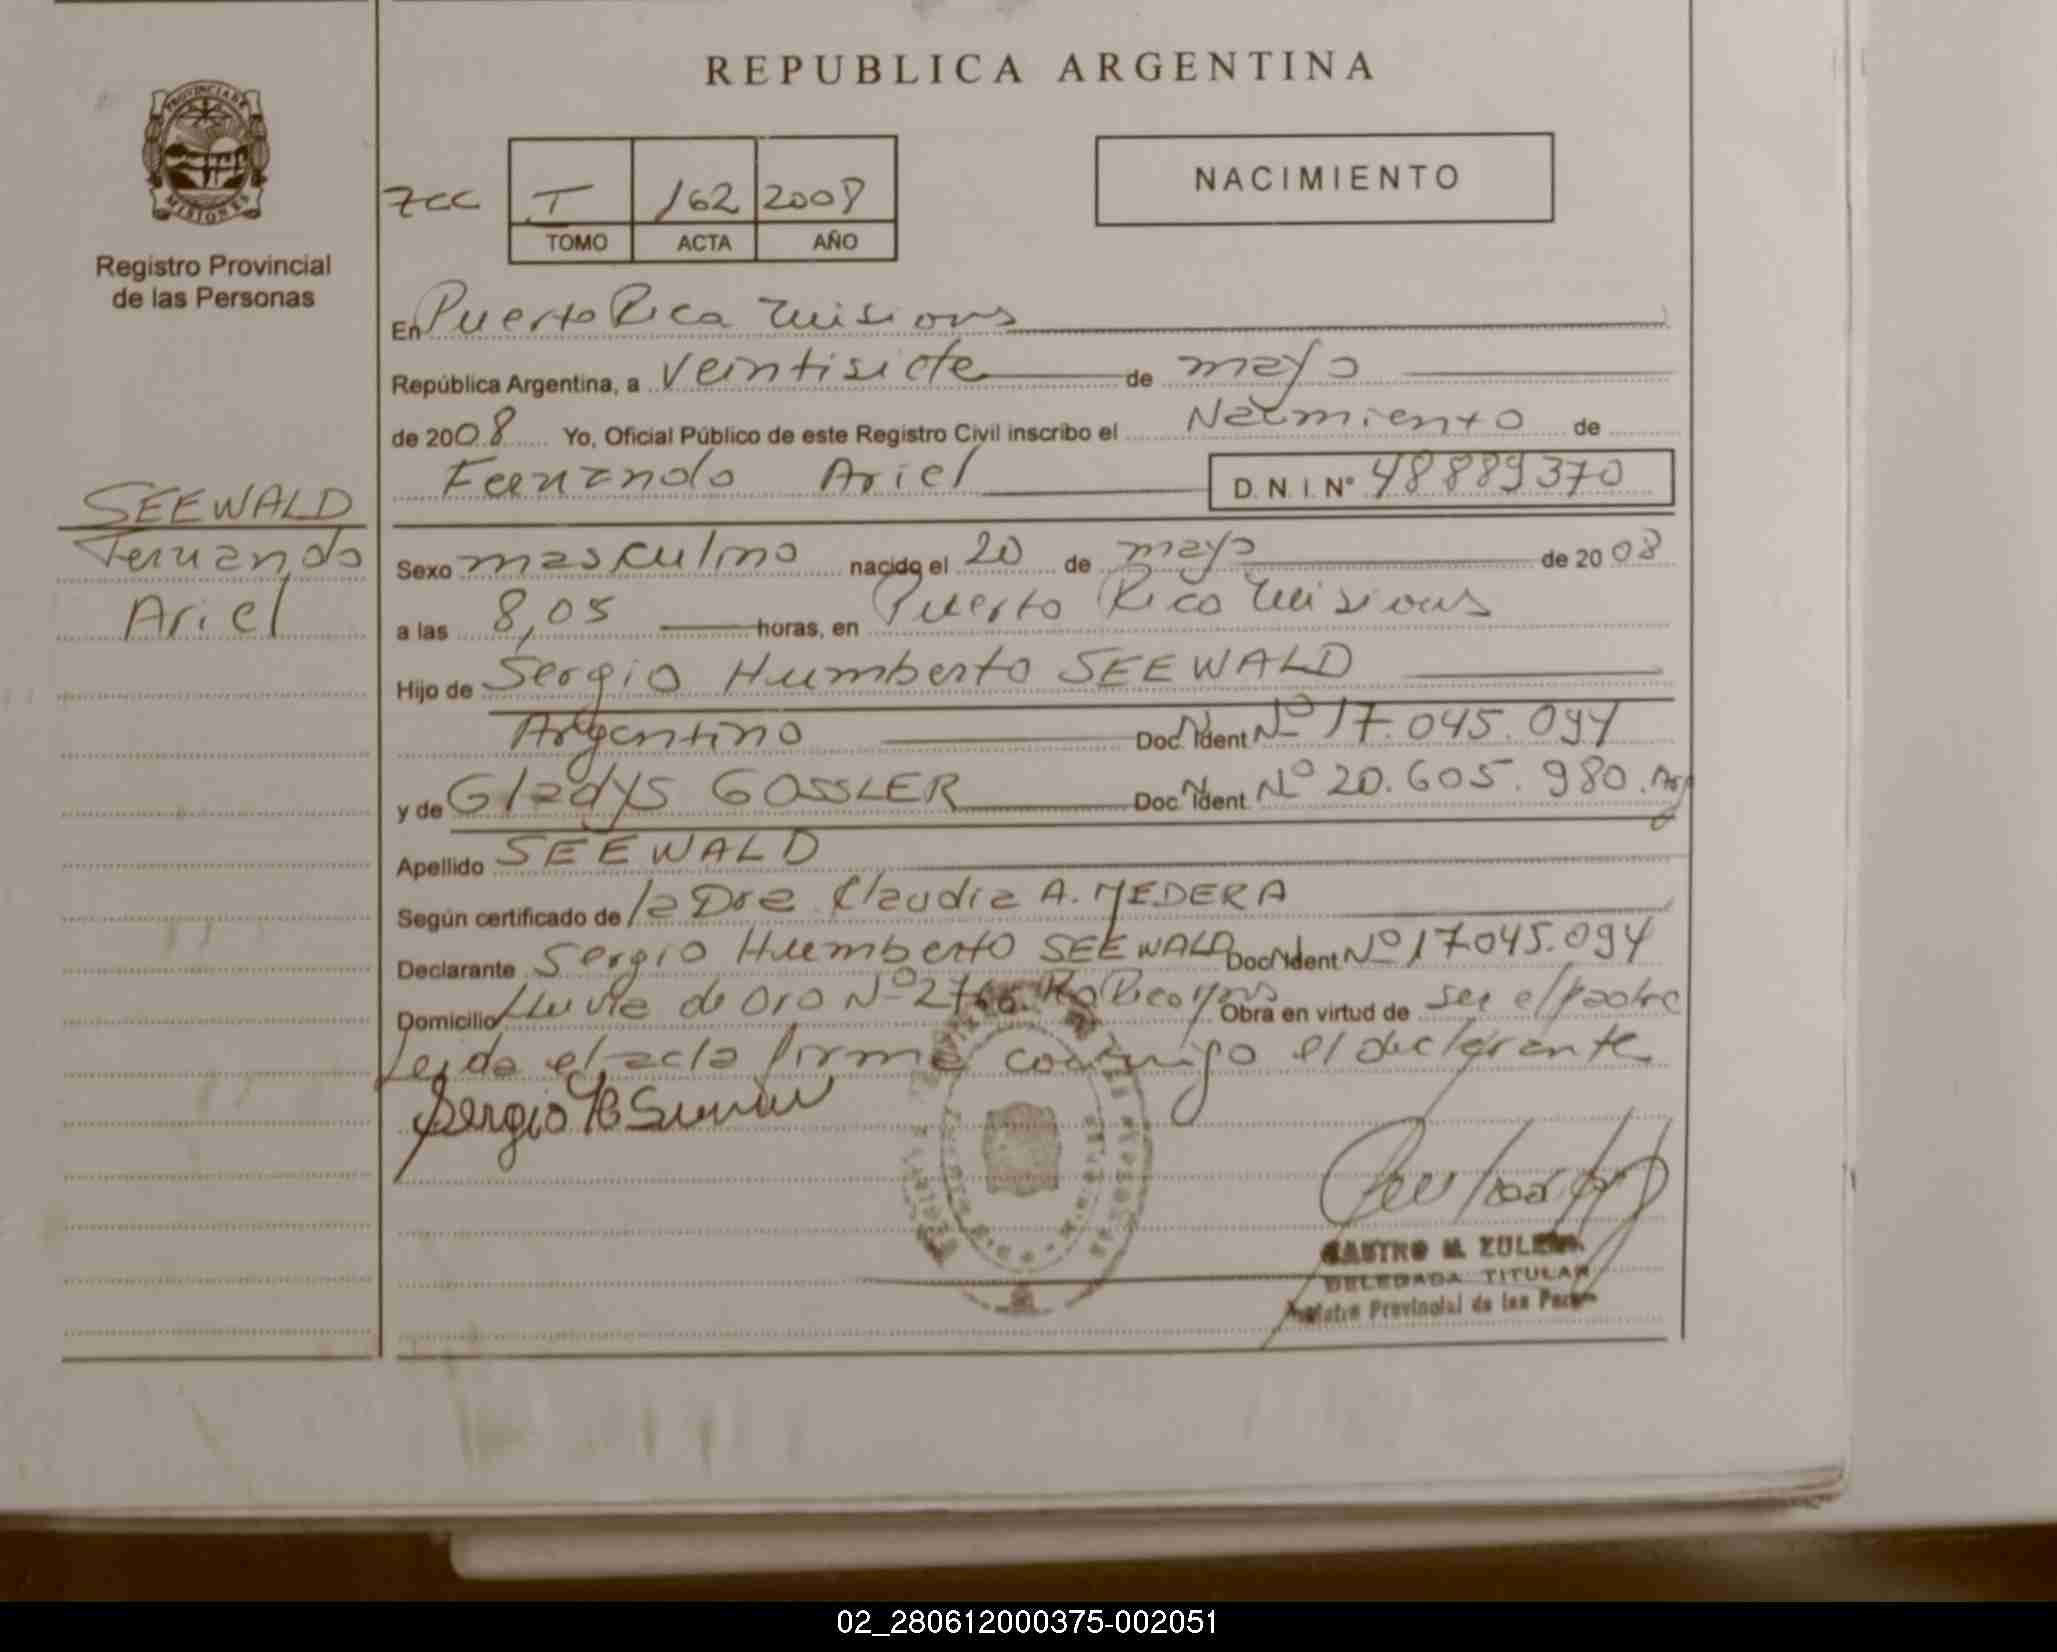 REPUBLICA ARGENTINA
PROVINCIA DE
MISIONES
Registro Provincial
de las Personas
NACIMIENTO
7cc T 162 2008
TOMO ACTA AÑO
En Puerto Rico Misiones
República Argentina, a veintisiete de mayo
de 2008 Yo, Oficial Público de este Registro Civil inscribo el Nacimiento de
Fernando Ariel D. N. I. N° 48889370
SEEWALD
Fernando
Ariel
Sexo masculino nacido el 20 de mayo de 2008
a las 8,05 horas, en Puerto Rico Misiones
Hijo de Sergio Humberto SEEWALD
Argentino Doc. Ident. Nº 17.045.094
y de Gladys GOSSLER Doc. Ident. Nº 20.605.980. Arg
Apellido SEEWALD
Según certificado de la Dra Claudia A. MEDERA
Declarante Sergio Humberto SEEWALD Doc. Ident. Nº 17.045.094
Domicilio Lluvia de Oro Nº Pto Rico Mnes Obra en virtud de ser el padre
Leida el acta firma conmigo el declarante
Sergio H
CASTRO M. ZULEMA
DELEGADA TITULAR
Registro Provincial de las Personas
02_280612000375-002051